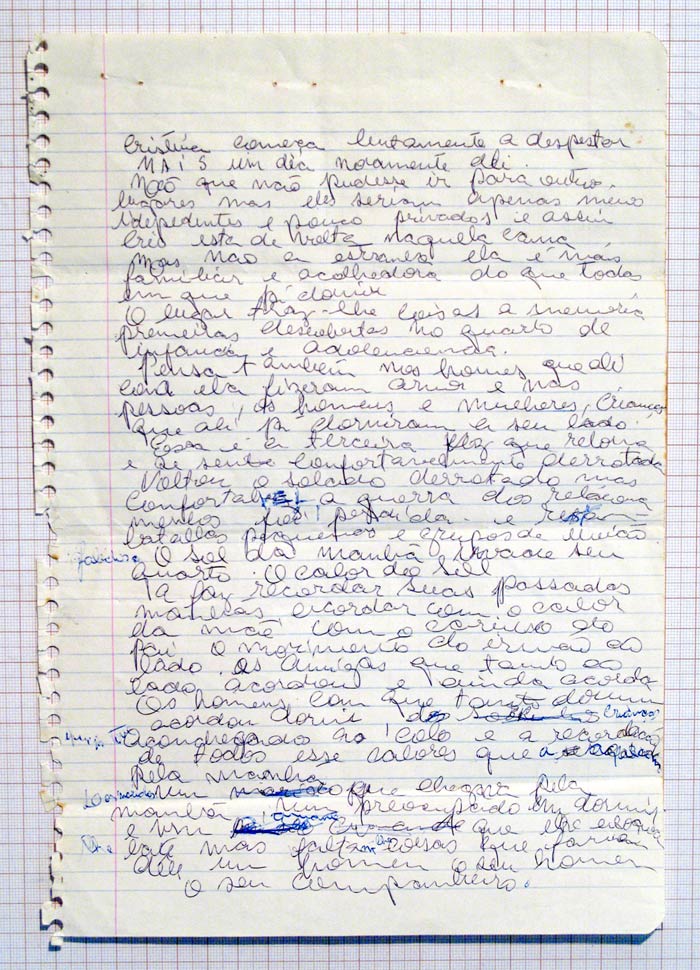 Cristina começa lentamente a despertar
MAIS um dia novamente ali.
Não que não pudesse ir para outros
lugares mas eles seriam apenas menos
e pouco privados e assim
Cris esta de volta naquela cama
mas não a estranha ela é mais
familiar e acolhedora do que todas
em que já dormiu
O lugar traz-lhe coisas a memória
primeiras descobertas no quarto de
infancia e adolencencia.
Pensa também nos homens que ali
com ela fizeram amor e nas
pessoas, os homens e mulheres, crianças
que ali já dormiram a seu lado.
Essa é a terceira vez que retorna
e se sente confortavelmente derrotada
Voltou o soldado derrotado mas
confortavel a guerra dos relaciona
mentos foi perdida e
batalhas pequenas e grupos de
O sol da manhã seu
quarto. O calor do sol
a faz recordar suas passadas
manhãs acordar com o calor
da mãe com o carinho do
pai o movimento do irmão ao
lado. As amigas que tanto ao
lado acordou e ainda acorda
Os homens com que tanto dormiu
acordou dormir crianças
Aconchegadas ao colo e a recordação
de todos esse valores que
pela manhã
um que chegava pela
manhã um preocupado em dormir
e um que
mas faltam coisas que faziam
dele um homem o seu homem
o seu companheiro.